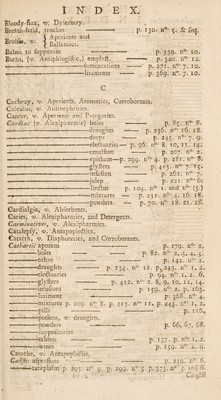 INDEX.
Bloody-flux, v. Dysentery.
Breath-foetid, troches — p. 130. nº 5. & seq.
Bruises, v. { Aperients and
Balsamics.
Buboes to suppurate — p. 339. nº 10.
Burns, (v. Antiphlogistic,) emplast. — p. 340. nº 12.
— embrocations — p. 271. nº 7. 10.
— liniments — p. 369. nº 7. 10.
C
Cachexy, v. Aperients, Aromatics, Corroborants.
Calculus, v. Antinephritics.
Cancer, v. Aperients and Paregorics.
Cardiac (v. Alexipharmic) bolus — p. 85. nº 8.
— draughts — p. 236. nº 16. 18.
— drops — p. 245. nº 7. 9.
— electuaries — p. 96. nº 8. 10, 11. 14.
— emulsion — p. 207. nº 2.
— epithem — p. 299. nº 4. p. 281. nº 8.
— glysters — p. 415. nº 7. 15.
— infusion — p. 262. nº 7.
— julep — p. 221. nº 6.
— linctus — p. 104. nº 1. and nº [3]
— mixtures — p. 211. nº 4. 16. 18.
— powders — p. 70. nº 18. 21. 28.
Cardialgia, v. Absorbents.
Caries, v. Alexipharmics, and Detergents.
Carminatives, v. Alexipharmics.
Catalepsy, v. Antapoplectics.
Catarrh, v. Diaphoretics, and Corroborants.
Cathartic apozem — p. 179. nº 2.
— boles — p. 82. nº 2. 3. 4. 5.
— ethers — p. 142. nº 1.
— draughts — p. 234. nº 12. p. 243. nº 1. 2.
— electuaries — p. 94. nº 1. 2. 6.
— glysters — p. 412. nº 8. 9, 10, 11. 14.
— infusions — p. 159. nº 2. p. 163.
— liniment — p. 368. nº 4.
— mixtures p. 209. nº 8. p. 213. nº 11. p. 243. nº 1. 2.
— pills — p. 116.
— potions, v. draughts.
— powders — p. 66, 67, 68.
— suppositories
— tablets — p. 137. p. nº 1. 2.
— wines — p. 159. nº 2.
Catoche, v. Antapoplectic.
— p. 259. nº 6.
— cataplasm p. 293. nº 9. p. 299. nº 3. p. 373. nº 5. and 6.